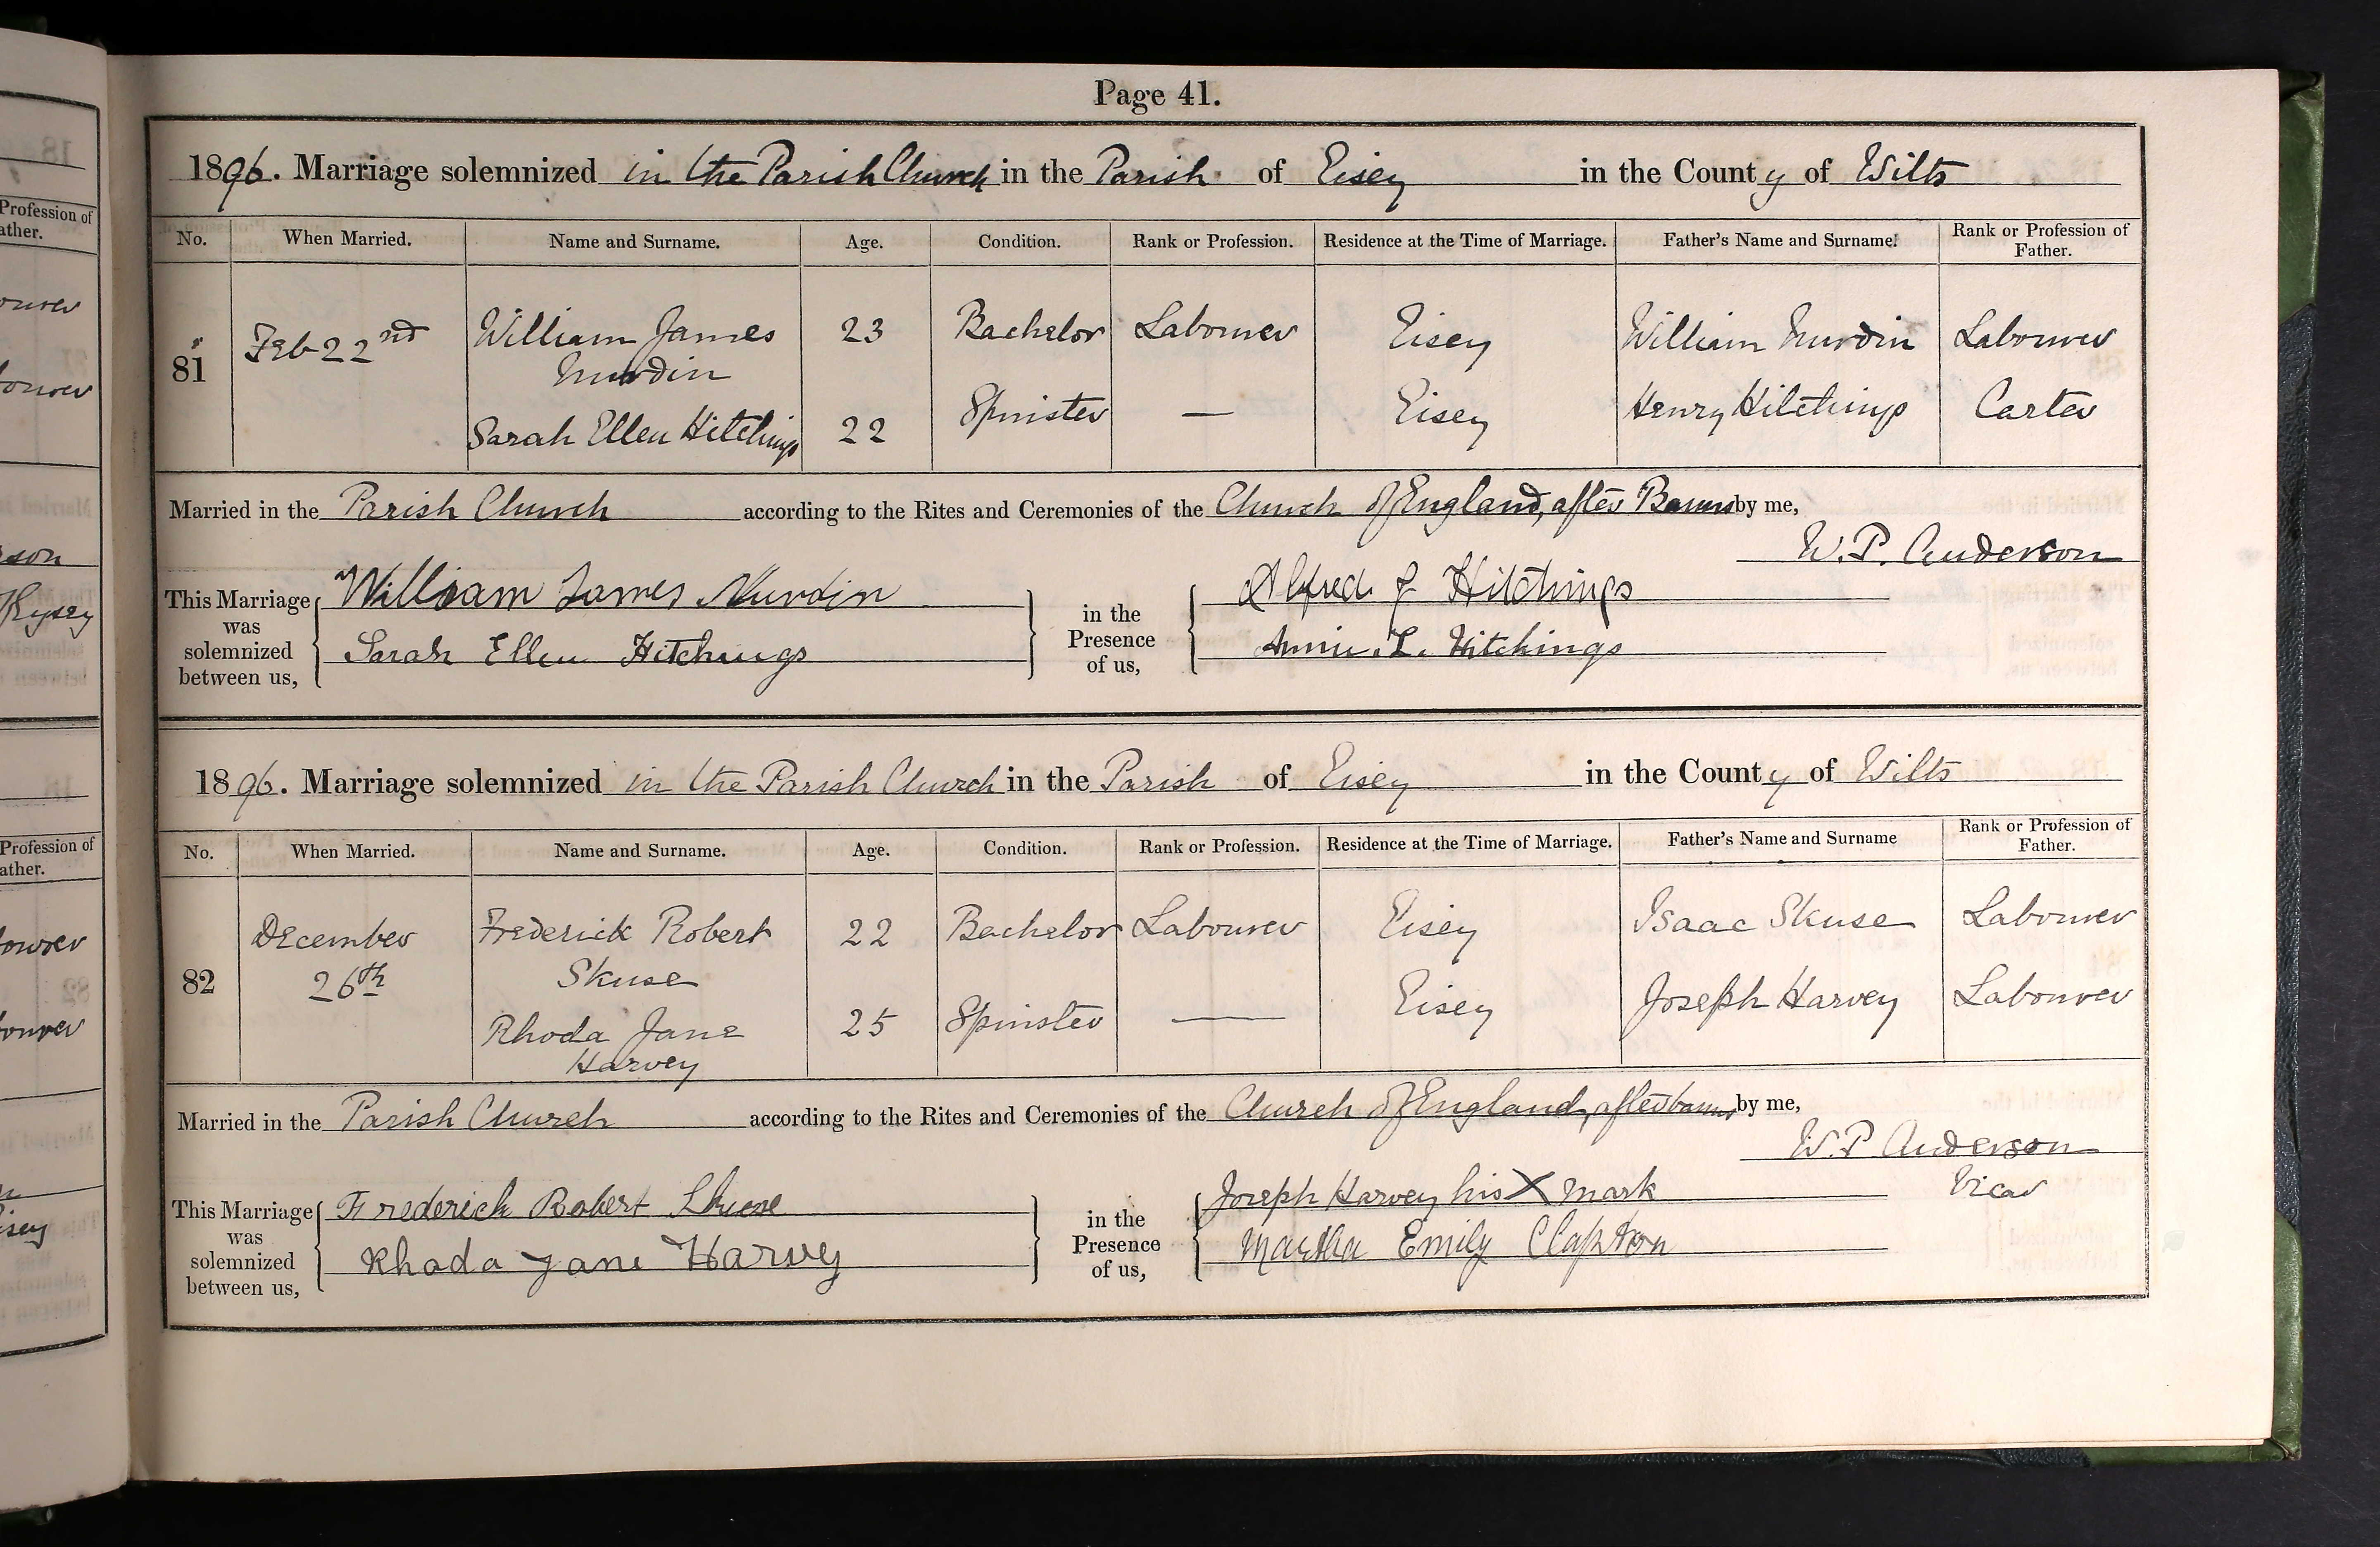 Page 41.
1896. Marriage solemnized in the Parish Church in the Parish of Eisey in the County of Wilts
No. When Married. Name and Surname. Age. Condition. Rank or Profession. Residence at the Time of Marriage. Father's Name and Surname. Rank or Profession of Father.
81 Feb 22nd William James Nurdin 23 Bachelor Labourer Eisey William Nurdin Labourer
Sarah Ellen Hitchings 22 Spinster — Eisey Henry Hitchings Carter
Married in the Parish Church according to the Rites and Ceremonies of the Church of England, after Banns by me,
W. P. Anderson
This Marriage was solemnized between us, William James Nurdin in the Presence of us, Alfred J Hitchings
Sarah Ellen Hitchings Annie. L. Hitchings
1896. Marriage solemnized in the Parish Church in the Parish of Eisey in the County of Wilts
No. When Married. Name and Surname. Age. Condition. Rank or Profession. Residence at the Time of Marriage. Father's Name and Surname Rank or Profession of Father.
82 December 26th Frederick Robert Skuse 22 Bachelor Labourer Eisey Isaac Skuse Labourer
Rhoda Jane Harvey 25 Spinster — Eisey Joseph Harvey Labourer
Married in the Parish Church according to the Rites and Ceremonies of the Church of England, after banns by me,
W. P Anderson
Vicar
This Marriage was solemnized between us, Frederick Robert Skuse in the Presence of us, Joseph Harvey his X mark
Rhoda Jane Harvey Martha Emily Clapton